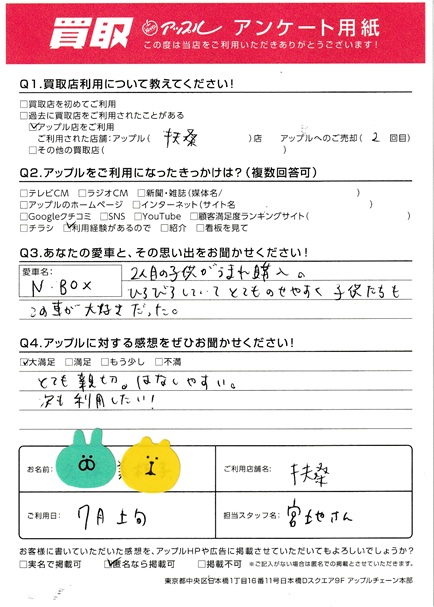 買取 アップル アンケート用紙
この度は当店をご利用いただきありがとうございます！
Q1.買取店利用について教えてください！
□買取店を初めてご利用
□過去に買取店をご利用されたことがある
☑アップル店をご利用
ご利用された店舗：アップル( 扶桑 )店 アップルへのご売却( 2 回目)
□その他の買取店( )
Q2.アップルをご利用になったきっかけは？(複数回答可)
□テレビCM □ラジオCM □新聞・雑誌(媒体名/ )
□アップルのホームページ □インターネット(サイト名 )
□Googleクチコミ □SNS □YouTube □顧客満足度ランキングサイト( )
□チラシ ☑利用経験があるので □紹介 □看板を見て
Q3.あなたの愛車と、その思い出をお聞かせください！
愛車名：
N・BOX
2人目の子供がうまれ購入。
ひろびろしていてとてものせやすく子供たちも
この車が大好きだった。
Q4.アップルに対する感想をぜひお聞かせください！
☑大満足 □満足 □もう少し □不満
とても親切。はなしやすい。
次も利用したい！
お名前：
ご利用店舗名： 扶桑
ご利用日： 7月上旬
担当スタッフ名： 宮地さん
お客様に書いていただいた感想を、アップルHPや広告に掲載させていただいてもよろしいでしょうか？
□実名で掲載可 ☑匿名なら掲載可 □掲載不可 ※ご記入がない場合は匿名での掲載とさせていただきます。
東京都中央区日本橋1丁目16番11号日本橋Dスクエア9F アップルチェーン本部